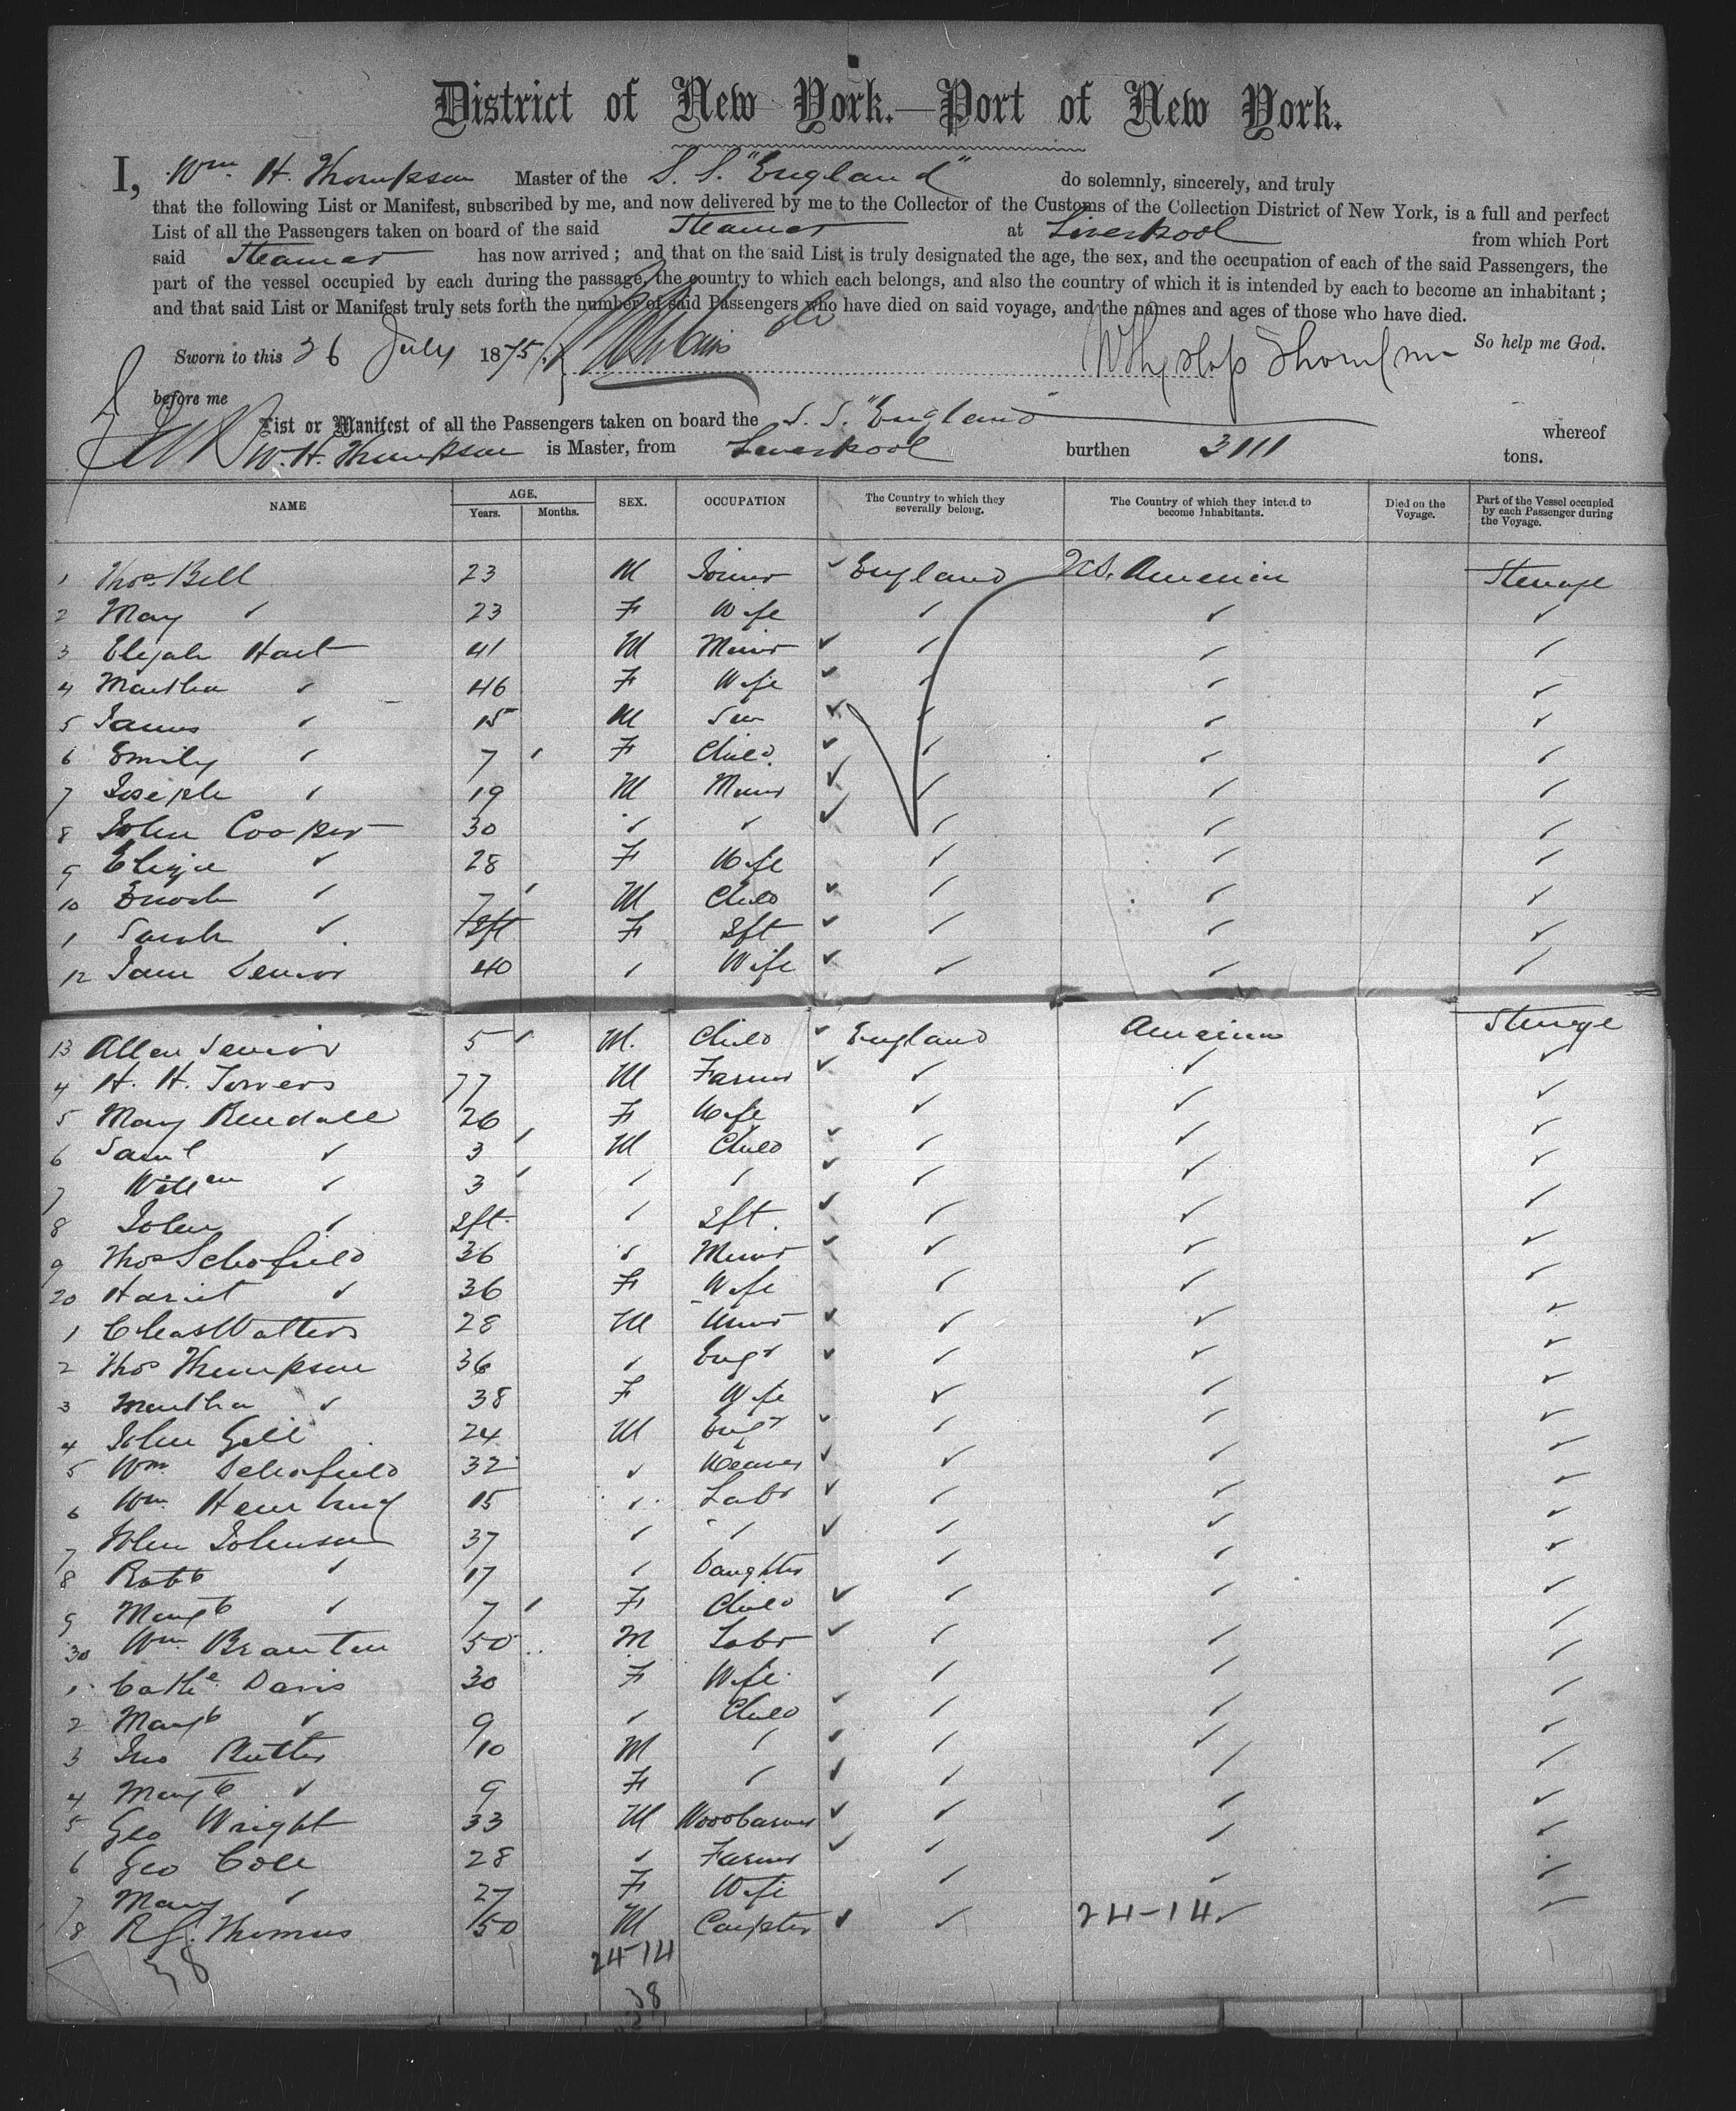 District of New York.—Port of New York.
I, Wm. H. Thompson Master of the S. S. "England" do solemnly, sincerely, and truly
that the following List or Manifest, subscribed by me, and now delivered by me to the Collector of the Customs of the Collection District of New York, is a full and perfect
List of all the Passengers taken on board of the said Steamer at Liverpool from which Port
said Steamer has now arrived; and that on the said List is truly designated the age, the sex, and the occupation of each of the said Passengers, the
part of the vessel occupied by each during the passage, the country to which each belongs, and also the country of which it is intended by each to become an inhabitant;
and that said List or Manifest truly sets forth the number of said Passengers who have died on said voyage, and the names and ages of those who have died.
Sworn to this 26 July 1875 So help me God.
before me
List or Manifest of all the Passengers taken on board the S. S. "England" whereof
W. H. Thompson is Master, from Liverpool burthen 3111 tons.
NAME AGE. Years. Months. SEX. OCCUPATION The Country to which they severally belong. The Country of which they intend to become Inhabitants. Died on the Voyage. Part of the Vessel occupied by each Passenger during the Voyage.
1 Thos Bell 23 M Joiner England U.S. America Steerage
2 Mary " 23 F Wife
3 Elijah Hart 41 M Miner
4 Martha " 46 F Wife
5 James " 15 M Son
6 Emily " 7 F Child
7 Joseph " 19 M Miner
8 John Cooper 30 " "
9 Eliza " 28 F Wife
10 Enoch " 7 M Child
1 Sarah " Ift F Ift
12 Jane Senior 40 " Wife
13 Allen Senior 5 M. Child England America Steerage
4 H. H. Towers 77 M Farmer
5 Mary Rendall 26 F Wife
6 Saml " 3 M Child
7 Willm " 3 " "
8 John " Ift " Ift.
9 Thos Schofield 36 " Miner
20 Hariet " 36 F Wife
1 Chas Walters 28 M Miner
2 Thos Thompson 36 " Engr
3 Martha " 38 F Wife
4 John Gill 24 M Engr
5 Wm. Schofield 32 " Weaver
6 Wm. 15 " Labr
7 John Johnson 37 " "
8 Robt " 17 " Daughter
9 Margt " 7 F Child
30 Wm 50 M Labr
1 Cathe Davis 30 F Wife
2 Margt " 9 " Child
3 Jno Rutter 10 M "
4 Margt " 9 F "
5 Geo Wright 33 M
6 Geo Cole 28 " Farmer
7 Mary " 27 F Wife
8 R. G. Thomas 50 M Carpeter 24-14
38 24-14
38